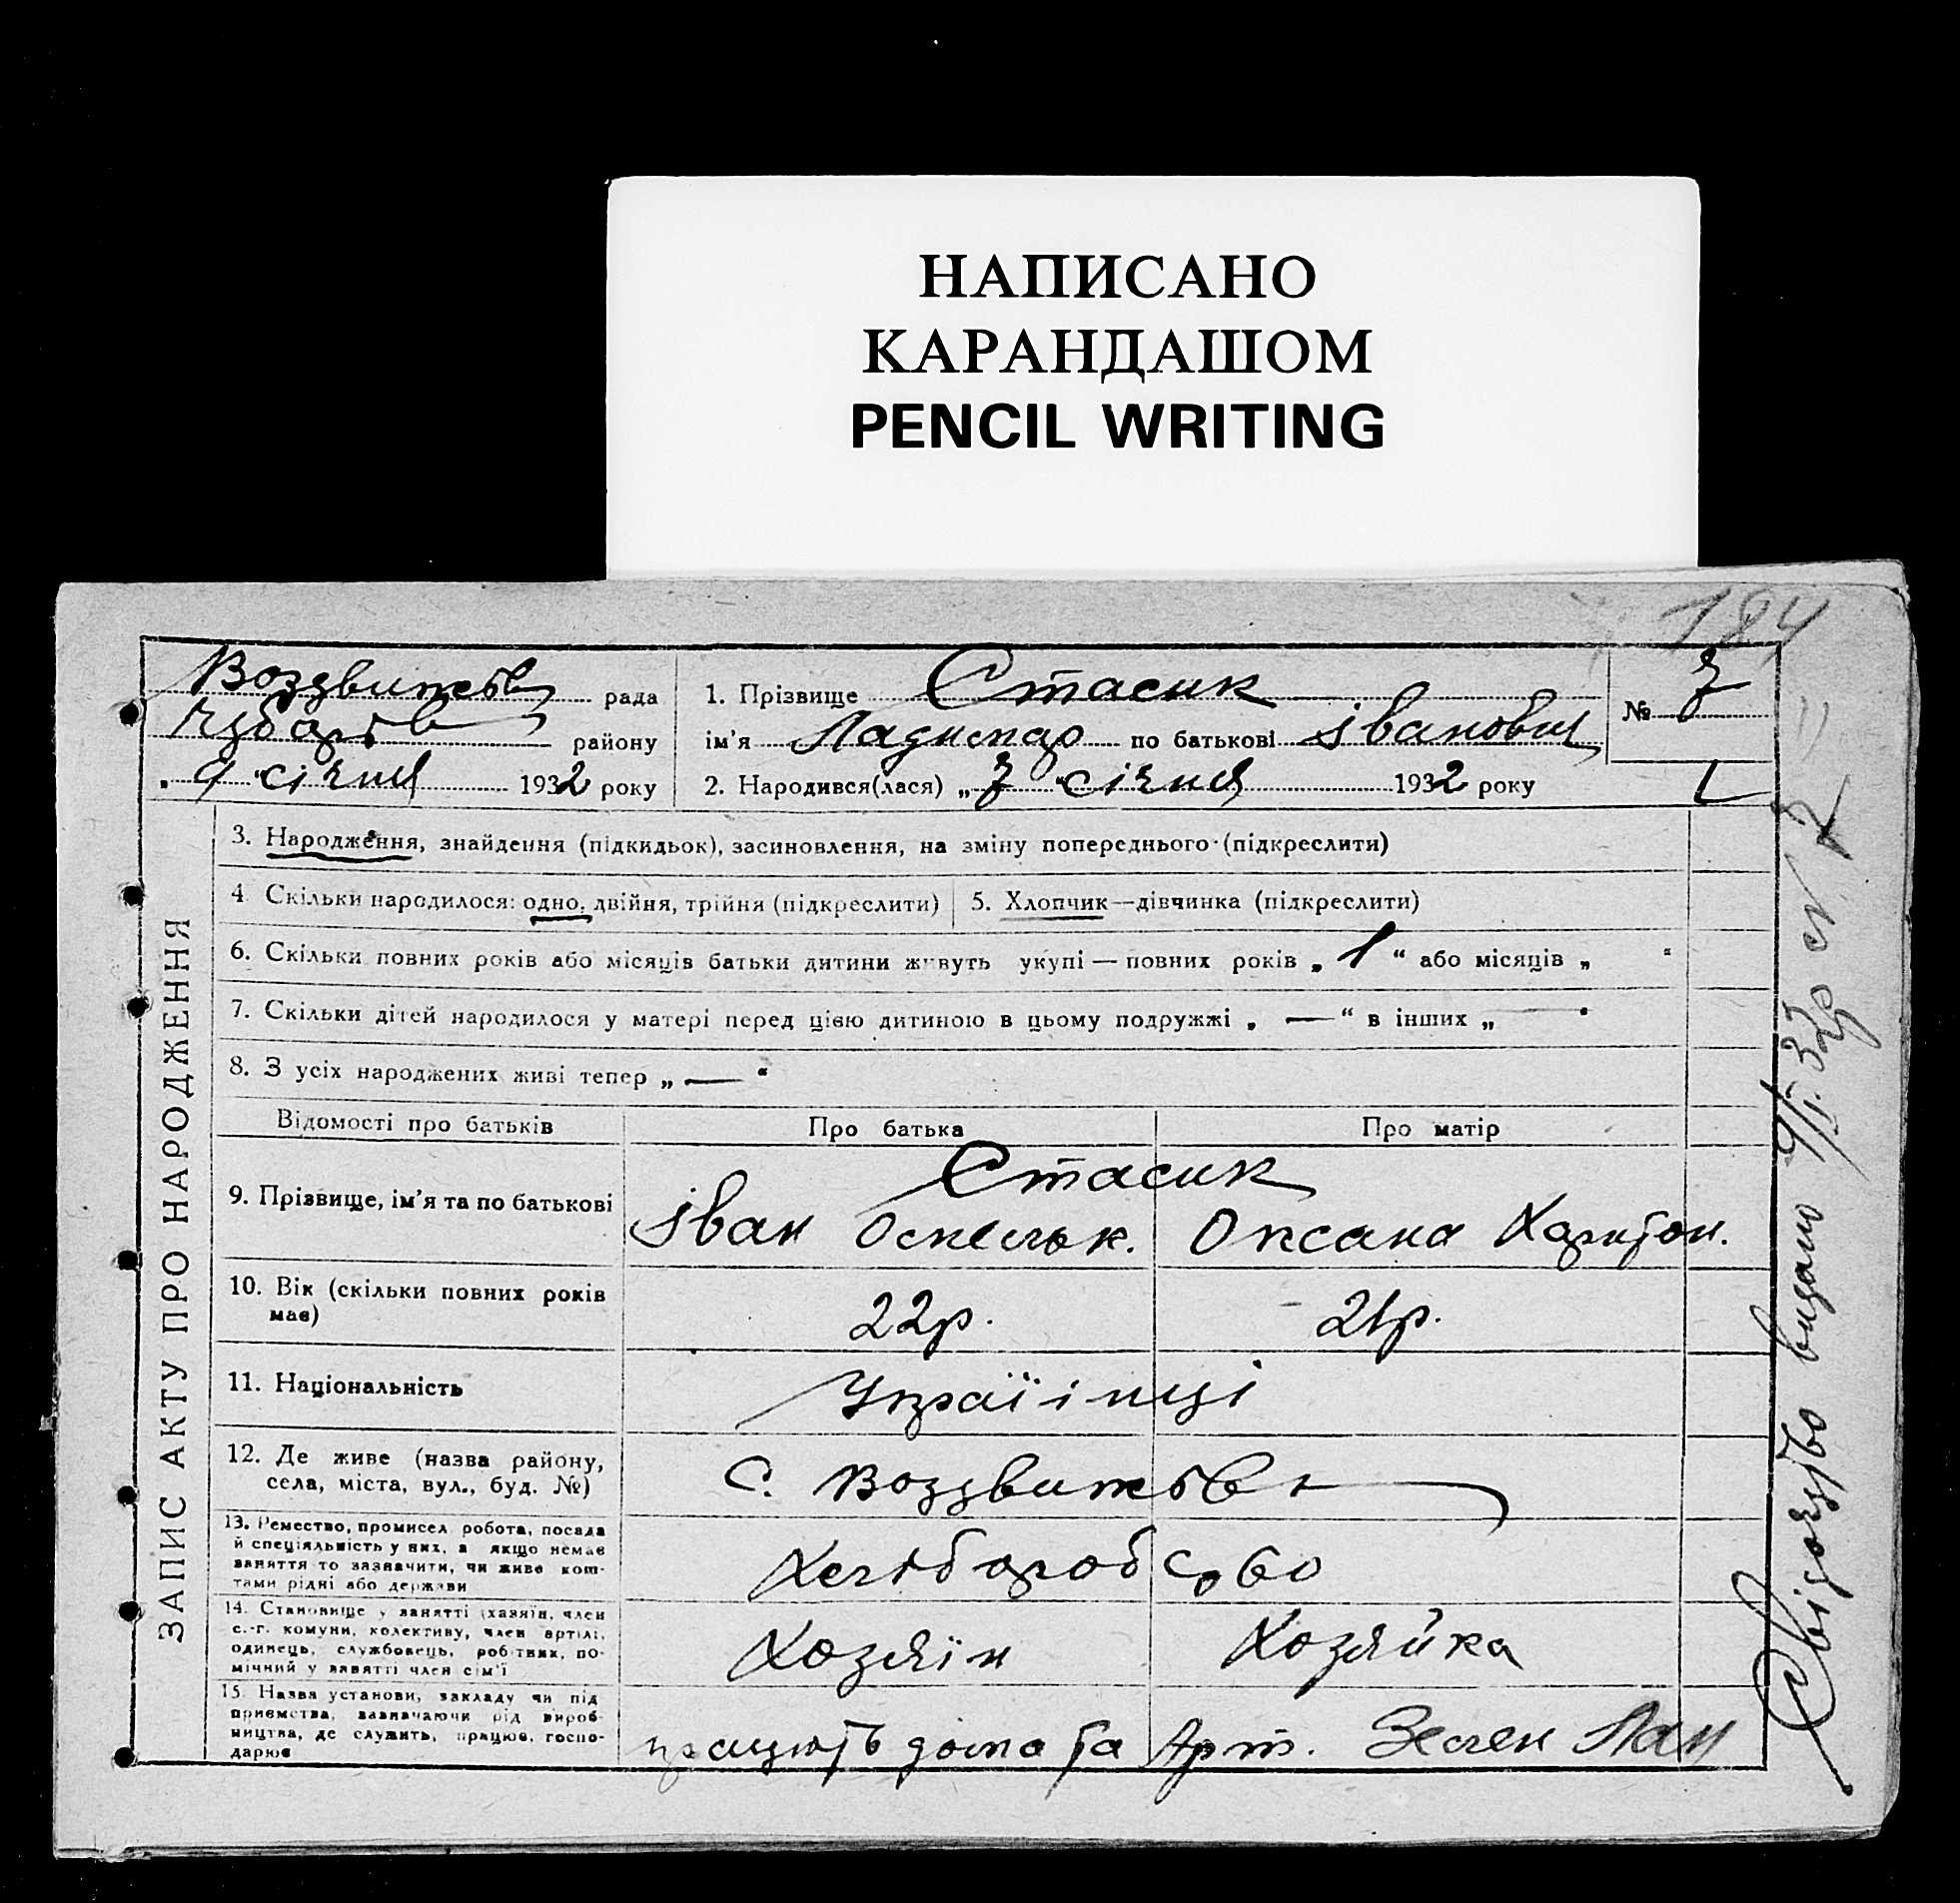 НАПИСАНО
КАРАНДАШОМ
PENCIL WRITING
184
Воздвижів рада
Чубарів району
„ 9 “ січня 1932 року
1. Прізвище Стасик
ім’я Ладимар по батькові Іванович
2. Народився(лася) „ 7 “ січня 1932 року
№ 7
1
ЗАПИС АКТУ ПРО НАРОДЖЕННЯ
3. Народження, знайдення (підкидьок), засиновлення, на зміну попереднього (підкреслити)
4. Скільки народилося: одно, двійня, трійня (підкреслити)
5. Хлопчик—дівчинка (підкреслити)
6. Скільки повних років або місяців батьки дитини живуть укупі — повних років „ 1 “ або місяців „ “
7. Скільки дітей народилося у матері перед цією дитиною в цьому подружжі „ — “ в інших „ — “
8. З усіх народжених живі тепер „ — “
Відомості про батьків Про батька Про матір
9. Прізвище, ім’я та по батькові
Стасик
Іван Омельк. Оксана Харитон.
10. Вік (скільки повних років
має)
22р. 21р.
11. Національність
Україінці
12. Де живе (назва району,
села, міста, вул., буд. №)
с. Воздвижівк
13. Ремество, промисел робота, посада
й спеціяльність у них, а якщо немає
заняття то зазначити, чи живе кош-
тами рідні або держави
Хлібороб ство
14. Становище у занятті (хазяїн, член
с.-г. комуни, колективу, член артілі,
одинець, службовець, робітник, по-
мічний у занятті член сім’ї
Хозяїн Хозяйка
15. Назва установи, закладу чи під
приємства, зазначаючи рід вироб-
ництва, де служить, працює, госпо-
дарює
працюють дома та Арт. Зелен Лан
Свідоцтво видано 9/I. 32р № 7